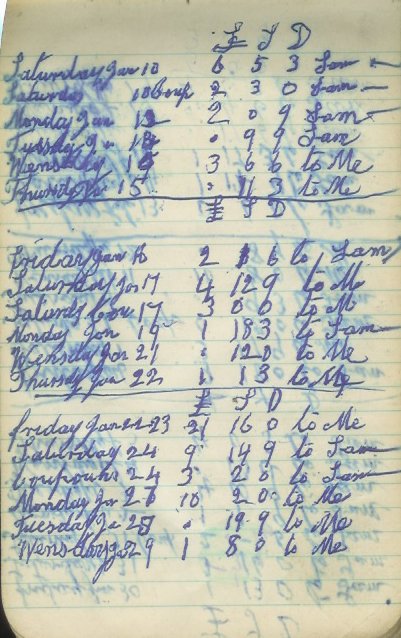 £ S D
Saturday Jan 10 6 5 3 Sam
Saturday 10 Coup 2 3 0 Sam
Monday Jan 2 0 9 Sam
Tuesday Jan . 9 9 Sam
Wensday 3 6 6 to Me
Thursday 15 . 11 3 to Me
£ S D
Friday Jan 16 2 6 to Sam
Saturday Jan 17 4 12 9 to Me
Saturdy 17 3 0 0 to M
Monday Jan 19 1 18 3 to Sam
Wensday Jan 21 . 12 0 to Me
Thursdy Jan 22 1 1 3 to Me
£ S D
friday Jan 23 21 16 0 to Me
Saturday 24 9 14 9 to Sam
Coupouns 24 3 2 6 to Sam
Monday Jan 26 10 2 0 to Me
Tuesday Jan . 19 9 to Me
Wensday Jan 29 1 8 0 to Me